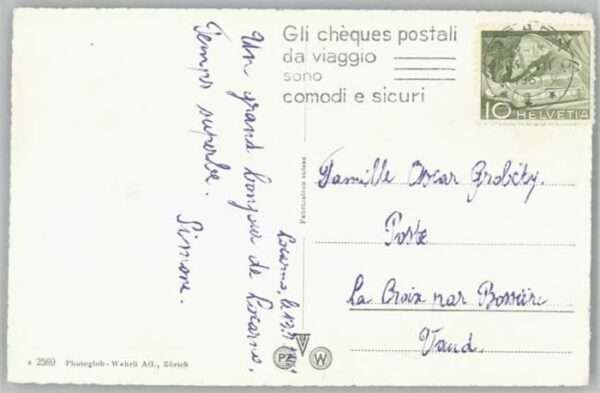 Gli chèques postali
da viaggio
sono
comodi e sicuri
10 HELVETIA
Locarno, le 13.
Un grand bonjour de Locarno.
Temps superbe.
Simone.
Fabrication suisse
Famille Oscar
Poste
La Croix par Bossière
Vaud.
PZ W
2569 Photoglob-Wehrli AG., Zürich